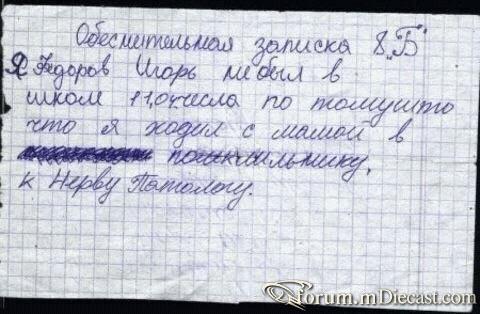 Обеснительная записка 8 "Б"
Я Федоров Игорь небыл в
школи 11,04числа по томушто
что я ходил с мамой в
к Нерву Патологу.
forum.mDiecast.com